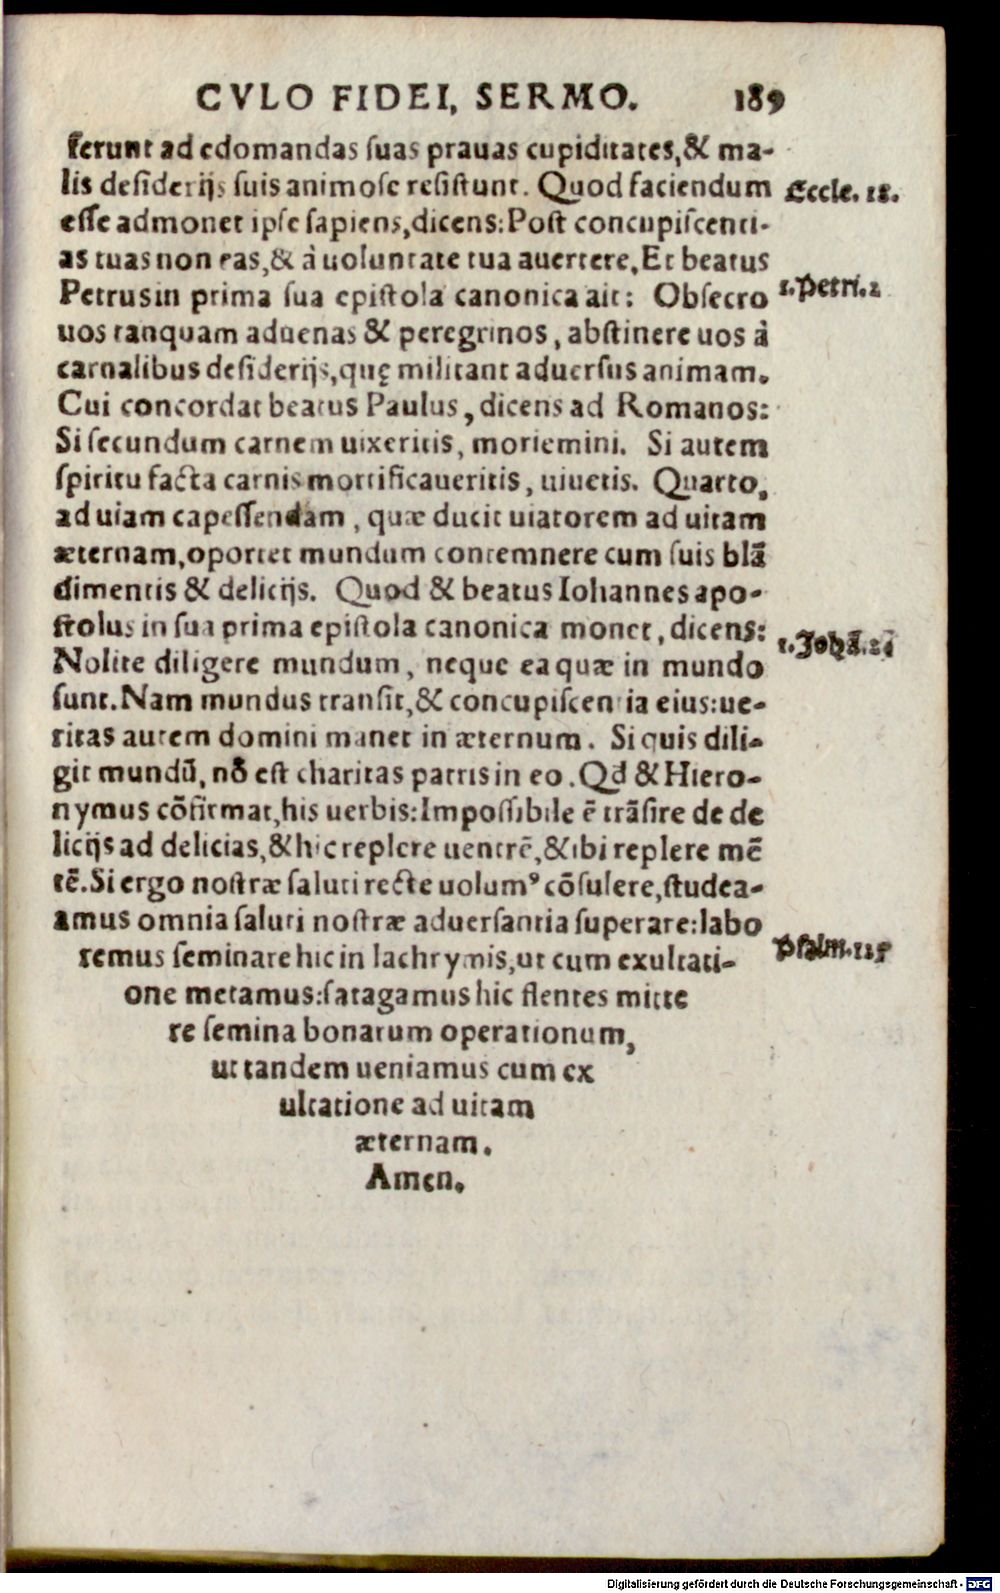 CVLO FIDEI, SERMO. 189
ferunt ad edomandas ſuas prauas cupiditates,& ma-
lis deſiderijs ſuis animoſe reſiſtunt. Quod faciendum
Eccle. 18.
eſſe admonet ipſe ſapiens,dicens:Poſt concupiſcenti-
as tuas non eas,& à uoluntate tua auertere.Et beatus
Petrus in prima ſua epiſtola canonica ait: Obſecro
1.Petri.2
uos tanquam aduenas & peregrinos, abſtinere uos à
carnalibus deſiderijs,quę militant aduerſus animam.
Cui concordat beatus Paulus, dicens ad Romanos:
Si ſecundum carnem uixeritis, moriemini. Si autem
ſpiritu facta carnis mortificaueritis, uiuetis. Quarto,
ad uiam capeſſendam, quæ ducit uiatorem ad uitam
æternam,oportet mundum contemnere cum ſuis blã
dimentis & delicijs. Quod & beatus Iohannes apo-
ſtolus in ſua prima epiſtola canonica monet, dicens:
1.Johã.2
Nolite diligere mundum, neque ea quæ in mundo
ſunt.Nam mundus tranſit,& concupiſcentia eius:ue-
ritas autem domini manet in æternum. Si quis dili-
git mundũ, nõ eſt charitas patris in eo. Qd & Hiero-
nymus cõfirmat,his uerbis:Impoſſibile ẽ trãſire de de
licijs ad delicias,& hic replere uentrẽ,& ibi replere mẽ
tẽ.Si ergo noſtræ ſaluti recte uolumꝰ cõſulere,ſtudea-
amus omnia ſaluti noſtræ aduerſantia ſuperare:labo
remus ſeminare hic in lachrymis,ut cum exultati-
Pſalm.125
one metamus:ſatagamus hic flentes mitte
re ſemina bonarum operationum,
ut tandem ueniamus cum ex
ultatione ad uitam
æternam.
Amen.
Digitalisierung gefördert durch die Deutsche Forschungsgemeinschaft - DFG